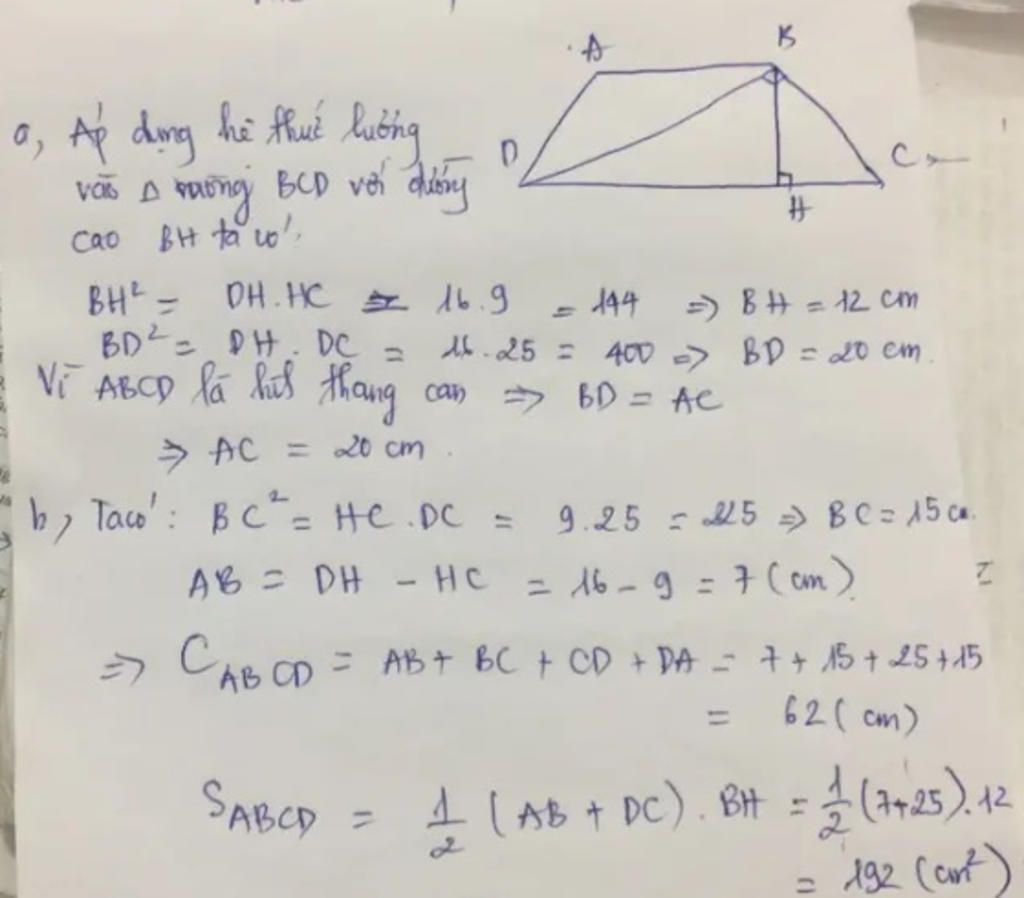 A
B
D
C
H
a, Áp dụng hệ thức lượng
vào Δ vuông BCD với đường
cao BH ta có:
BH² = DH.HC = 16.9 = 144 => BH = 12 cm
BD² = DH.DC = 16.25 = 400 => BD = 20 cm.
Vì ABCD là hình thang cân => BD = AC
=> AC = 20 cm.
b, Ta có: BC² = HC.DC = 9.25 = 225 => BC = 15 cm.
AB = DH - HC = 16 - 9 = 7 (cm)
=> C ABCD = AB + BC + CD + DA = 7 + 15 + 25 + 15
= 62 (cm)
S ABCD = 1/2 (AB + DC). BH = 1/2 (7+25).12
= 192 (cm²)